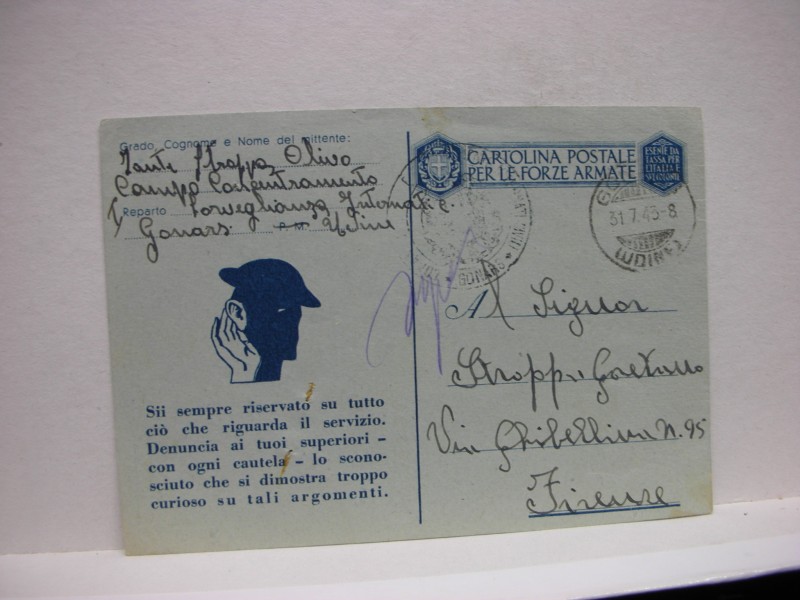 Grado, Cognome e Nome del mittente:
Fante Stroppa Olivo
Campo Concentramento
Reparto Sorveglianza Internati
Gonars P.M. Udine
CARTOLINA POSTALE
PER LE FORZE ARMATE
ESENTE DA
TASSA PER
L'ITALIA E
SUE COLONIE
GONARS
31.7.43-8
(UDINE)
Al Signor
Stroppa Gaetano
Via Ghibellina N. 95
Firenze
Sii sempre riservato su tutto
ciò che riguarda il servizio.
Denuncia ai tuoi superiori -
con ogni cautela - lo scono-
sciuto che si dimostra troppo
curioso su tali argomenti.